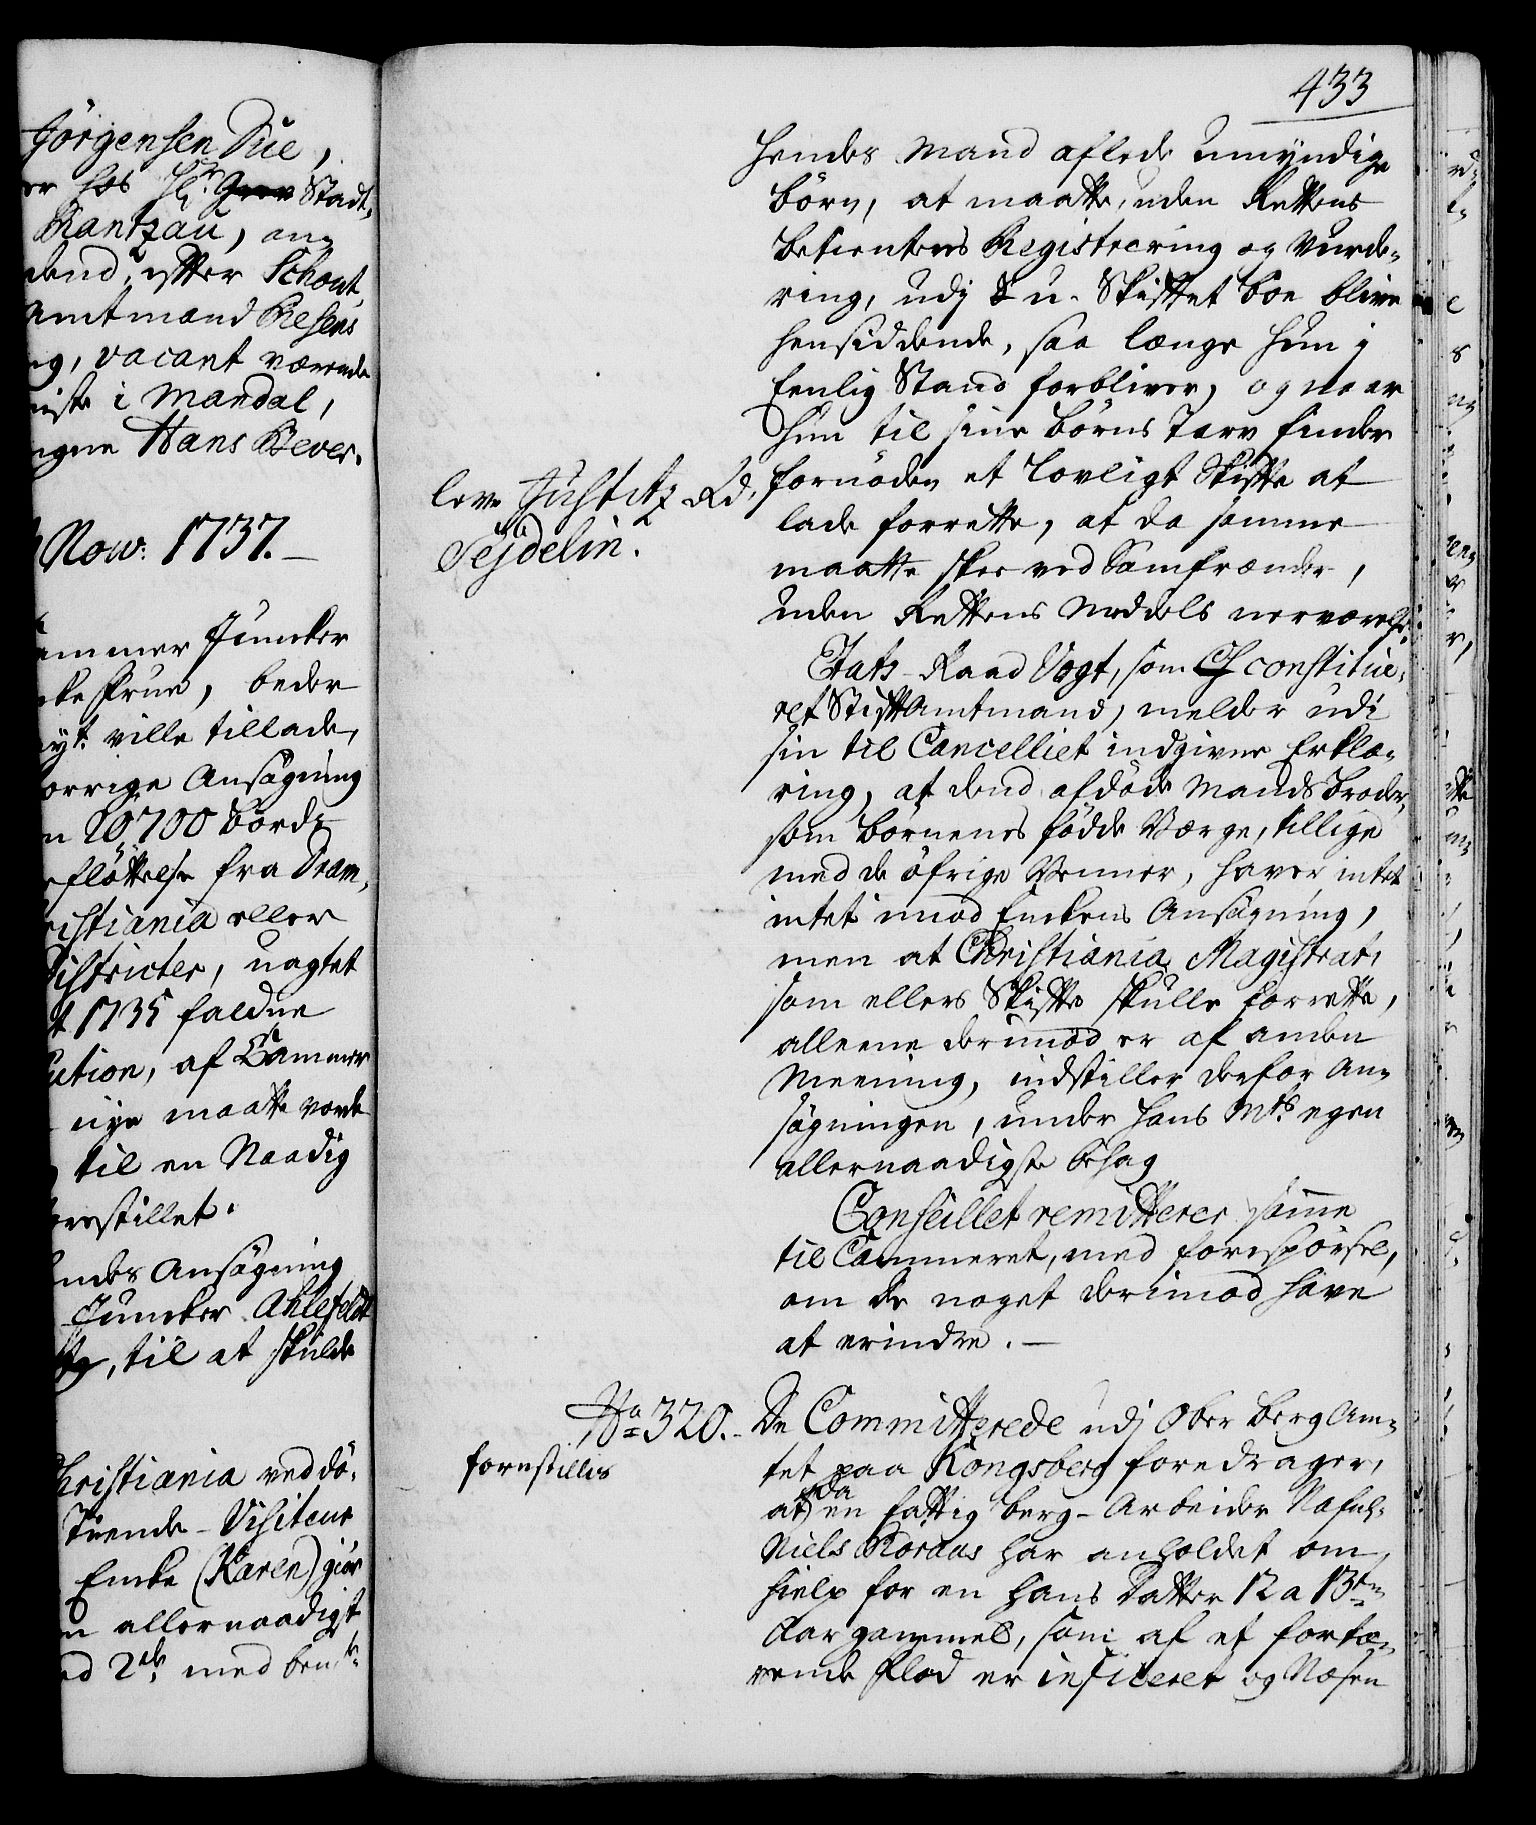 Jörgensen Due,
er hos H^r Grev Stadt,
Rantzau, an=
dend efter Schout
Amtmand Resens
ng, vacant værende
niste i Mandal,
ngne Hans Bever.
Nov: 1737.
ammer Juncker
ke Frue, beder
yt. ville tillade,
forrige Ansøgning
n 20700 Bord
eflöttelse fra Dram,
ristiania eller
Districter, uagtet
t 1735 faldne
ution, af Cammer
nye maatte vorde
til en Naadig
forestillet.
ndes Ansögning
Juncker Ahlefeldt
til at skulde
Christiania ved dö,
Tiende-Visiteur
Encke (Karen) giör
n allernaadigst
ed 2de med bem.te
433
hendes Mand aflede Umyndige
börn, at maatte, uden Rettens
betienters Registrering og Vurde=
ring, udj S. u. Skiftet boe blive
hensiddende, saa længe hun j
Eenlig Stand forbliver, og naar
hun til sine börns Tarv finder
fornöden et lovligt Skifte at
lade forrette, at da samme
maatte skee ved Samfrænder,
uden Rettens Middels nærværelse.
leve Justitz Rd.
Sejdelin.
Etats-Raad Vogt, som constitue,
ret Stiftamtmand, melder udi
sin til Cancelliet indgivne Erklæ=
ring, at dend afdöde Mands broder,
som börnenes födde Værge, tillige
med de öfrige Venner, haver intet
intet imod Enckens Ansögning,
men at Christiania Magistrat,
som ellers Skifte skulle forrette,
alleene derimod er af anden
Meening, indstiller derfor An=
sögningen, under Hans Mts egen
allernaadigste behag
Conseillet remitterer samme
til Cammeret, med forespörsel,
om de noget derimod have
at erindre.—
No 320.
forestilles
De Committerede udj Ober berg Am=
tet paa Kongsberg foredrager,
at da en fattig berg-Arbeider Nafnl.
Niels Koraas har anholdet om
hielp for en hans Datter 12 a 13ten
Aar gammel, som af et fortæ=
rende flod er inficeret og Næsen